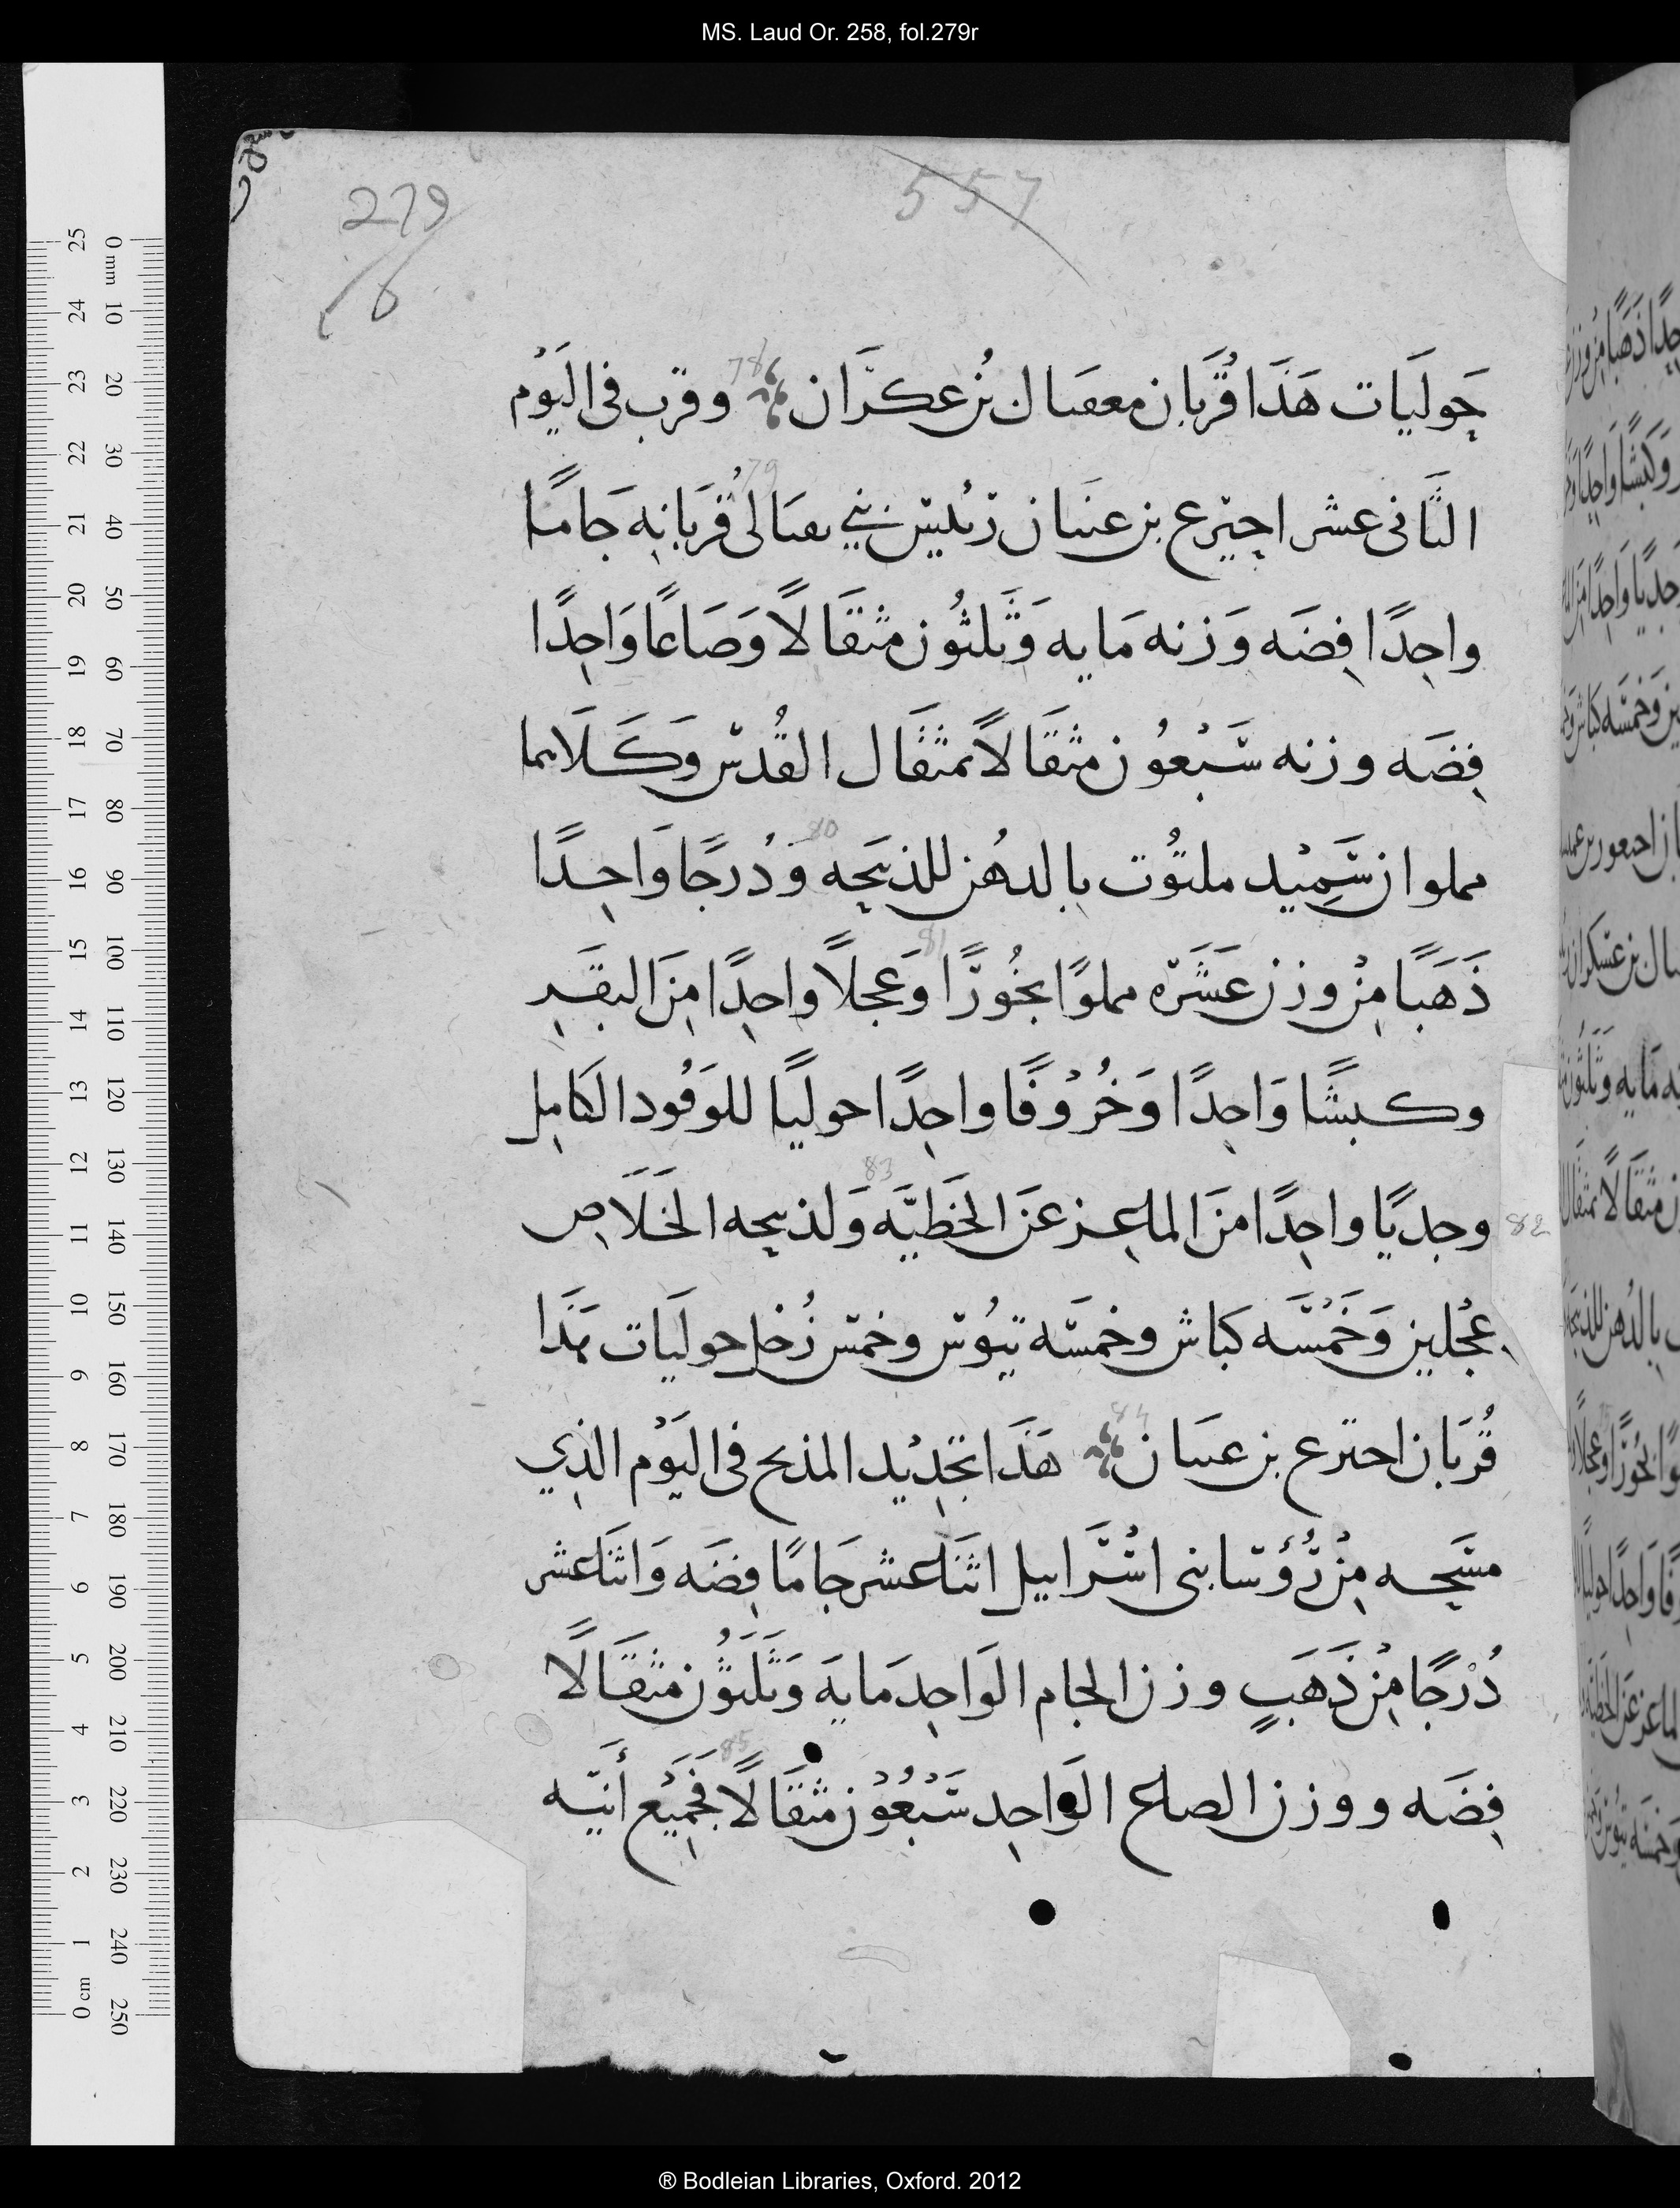 MS. Laud Or. 258, fol.279r
279
557
حَوليَات هَذَا قُرَبَان معفىال بُن عكرَان 78 وقرب فى اليَوْم
الثَانى عشر احيرع بن عينان رئيس بني نفتالى 79 قُربَانِه جَامًا
واحِدًا فِضَه وَزنه مَايه وَثَلثُون مثقَالاً وَصَاعًا وَاحِدًا
فِضَه وزنه سَبْعُون مثقَالاً بمثقَال القُدس وَكَلَاهما
مملوان سَمِيْد ملتُوت بالدهُن للذبيَحه 80 وَدُرجًا وَاحِدًا
ذَهَبًا مِنْ وزن عَشَرَه مملوًا بخُورًا 81 وَعِجلاً واحِدًا مِنَ البقَرِ
وكبشًا وَاحِدًا وَخُرْوفًا واحِدًا حوليًا للوَقُود الكَامِل
82 وجديًا واحِدًا مِنَ الماعِز عَنَ الخَطيَّه 83 وَلذبيحه الخَلَاصِ
عِجْلين وَخَمْسَه كبَاش وخمسَه تيُوس وخمس رُخل حوليَات هَذَا
قُربَان احيرع بن عينان 84 هَذَا تجْدِيْد المذبح فى اليَوْم الذِي
مسَحِه مِنْ رُؤسَا بنى اسْرَاييل اثنَاعشر جَامًا فِضَه وَاثنَاعشر
دُرْجًا مِنْ ذَهَبٍ وزن الجام الوَاحِد مَايَه وَثَلَثُون مثقَالًا
فِضَه ووزن الصاع الوَاحِد سَبْعُوْن مثقَالًا 85 فجَمِيْع أَنيَه
25 24 23 22 21 20 19 18 17 16 15 14 13 12 11 10 9 8 7 6 5 4 3 2 1 0 cm
0 mm 10 20 30 40 50 60 70 80 90 100 110 120 130 140 150 160 170 180 190 200 210 220 230 240 250
® Bodleian Libraries, Oxford. 2012